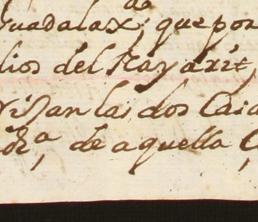 da
Guadalax; que por
lios del Nayarit,
visan las dos Casa
dra, de aquella C